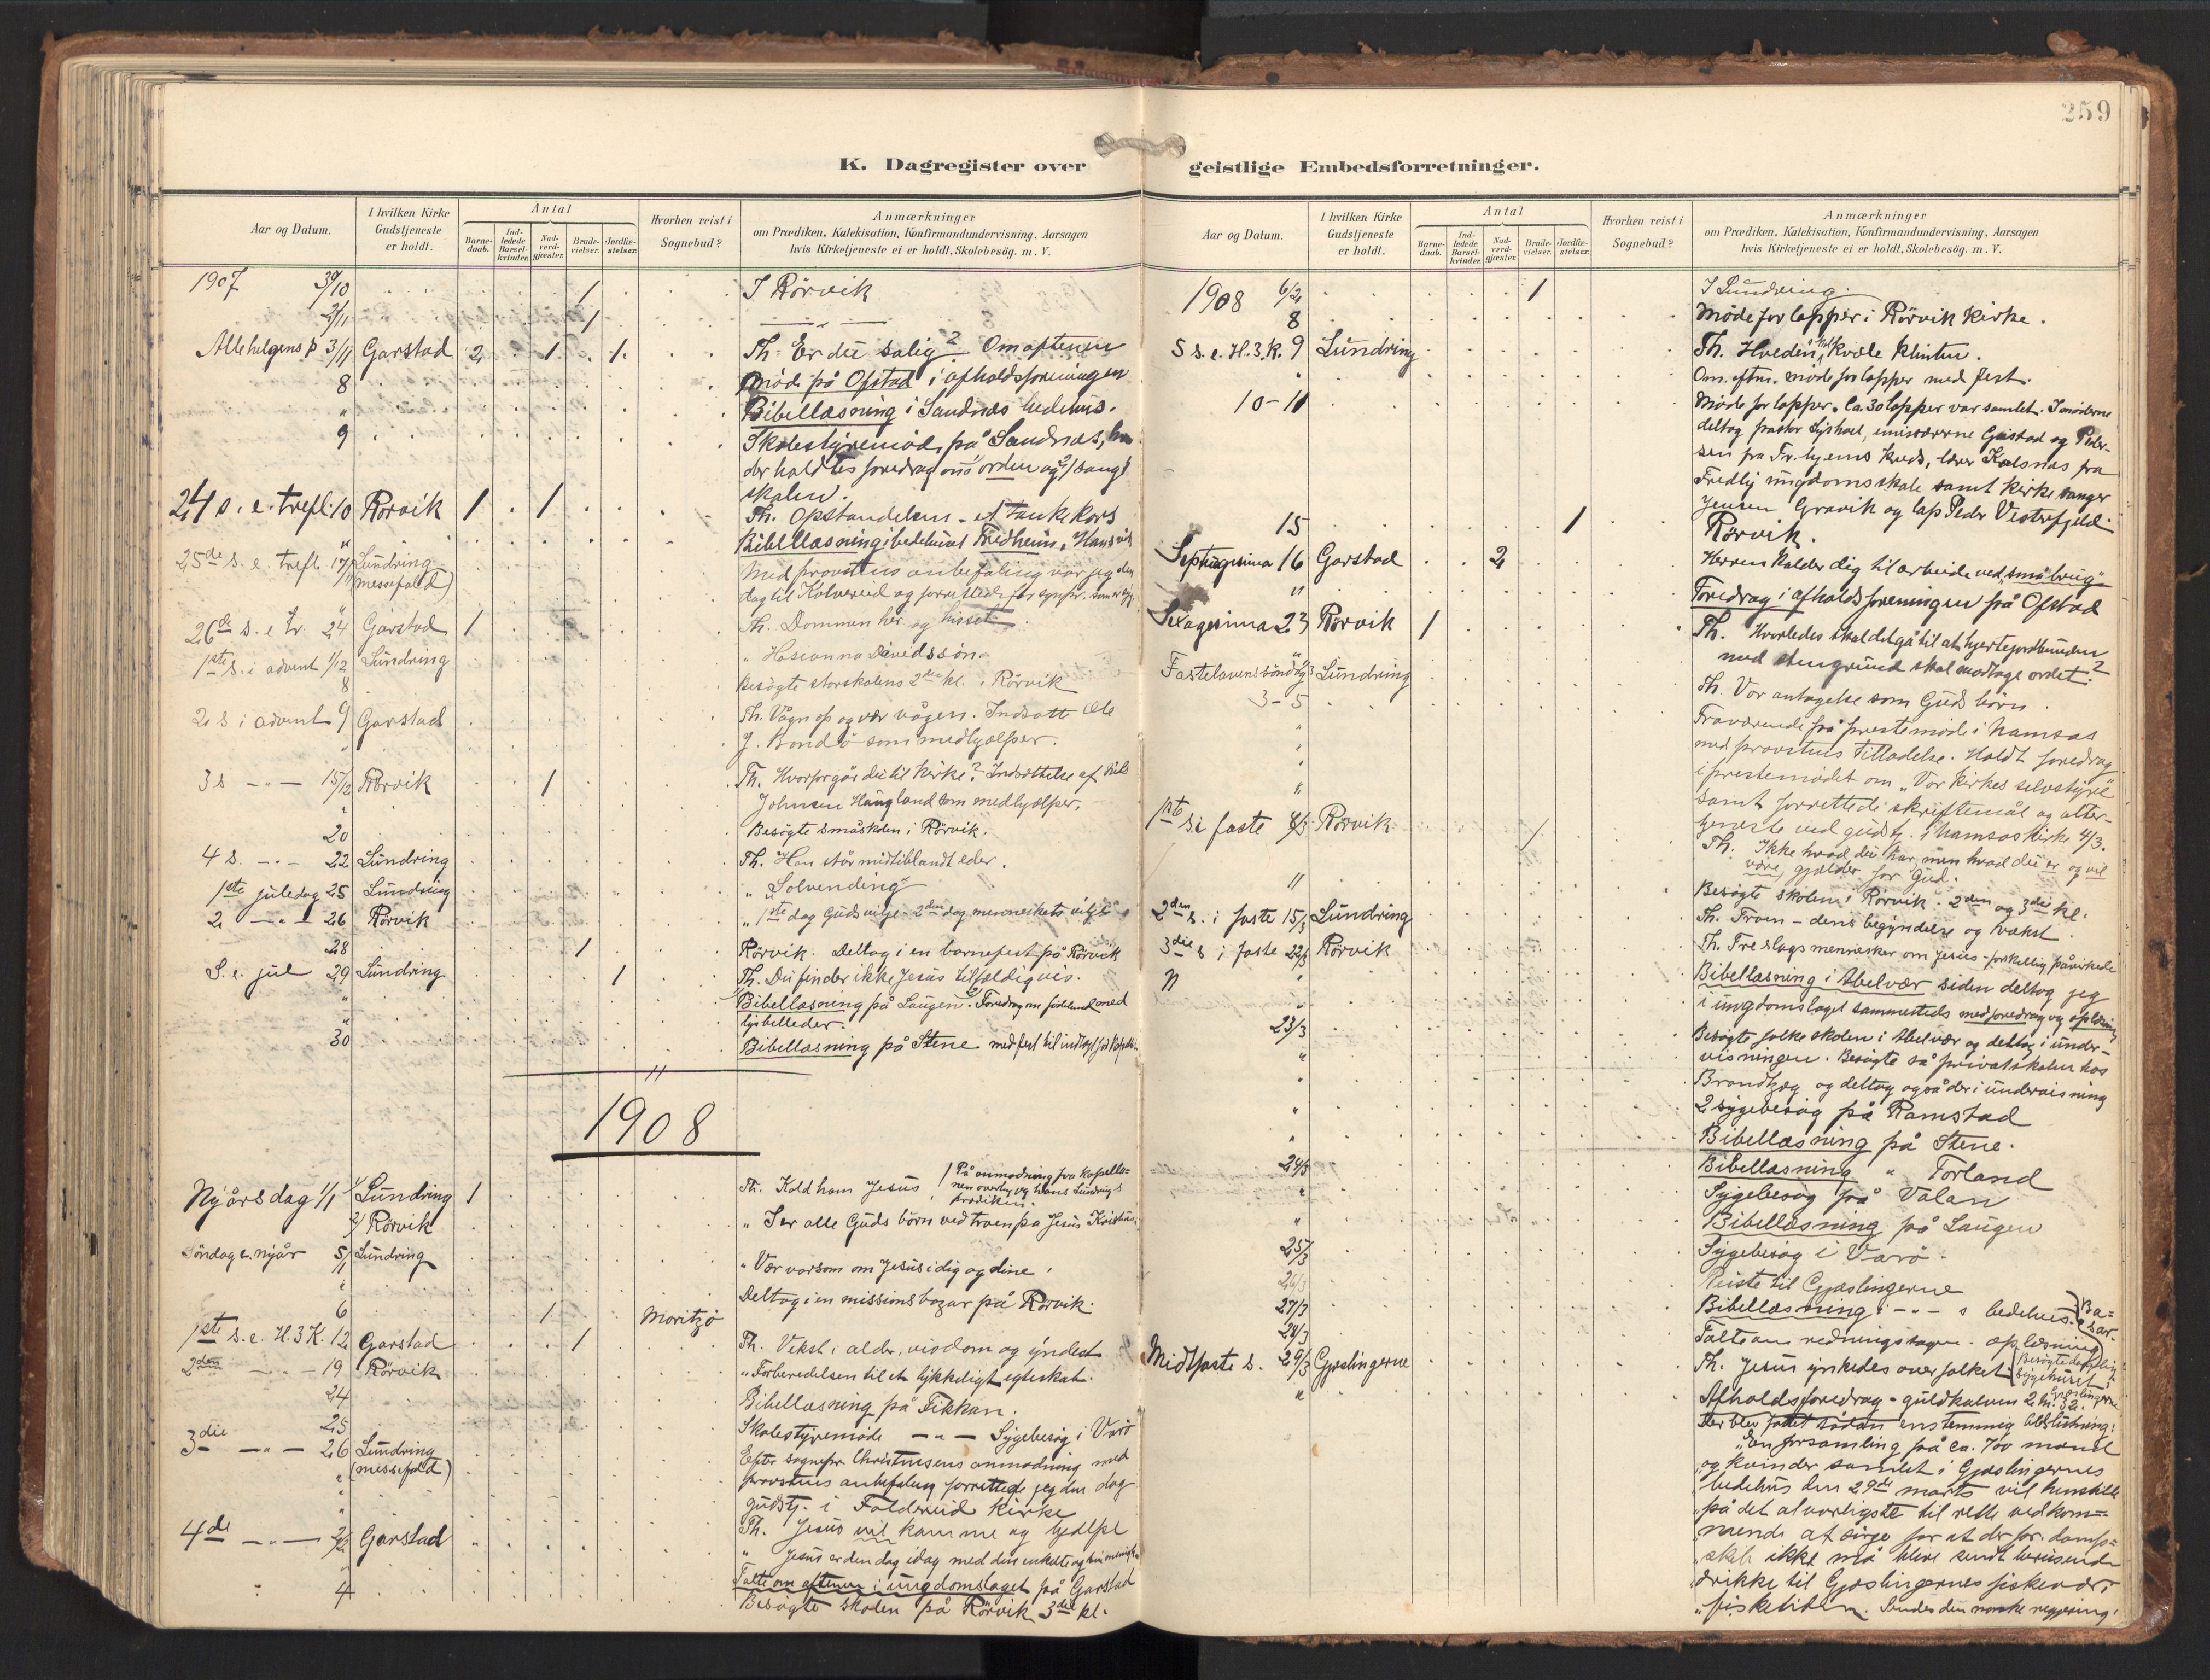 259
K. Dagregister over geistlige Embedsforretninger.
Aar og Datum.
I hvilken Kirke Gudstjeneste er holdt.
Antal
Barne-daab.
Ind-ledede Barsel-kvinder.
Nad-verd-gjæster.
Brude-vielser.
Jordfæ-stelser.
Hvorhen reist i Sognebud?
Anmærkninger
om Prædiken, Katekisation, Konfirmandundervisning, Aarsagen
hvis Kirketjeneste ei er holdt, Skolebesög. m. V.
1907 30/10 1 I Rörvik
2/11 1 — „ —
Allehelgens p 3/11 Garstad 2 1 1 Th. Er du salig? Om aftenen
møde på Ofstad i afholdsforeningen
8 Bibellæsning i Sandnæs bedehus.
9 Skolestyremøde på Sandnæs,
der holdtes foredrag om orden og 2/ sang i
skolen.
24 s. e. trefl. 10 Rørvik 1 1 Th. Opstandelsen - et tankekors
" Bibellæsning i bedehuset Fredheim,
25de s. e. trefl. 17/11 Lundring (messefald) Med provstens anbefaling var jeg den
dag til Kolvereid og forrettede for sognepr.
26de s. e. tr. 24 Garstad 1 Th. Dommen her og hisset.
1ste s. i advent 1/12 Lundring " Hosianna Davidssøn.
8 Besøgte storskolens 2den kl. i Rörvik
2 s i advent 9 Garstad Th. Vågn op og vær vågen. Indsatte Ole
J. Bondö som medhjælper.
3 s — „ — 15/12 Rørvik 1 Th. Hvorfor går du til kirke? Indsættelse af Nils
Johnsen Haugland som medhjælper.
20 Besøgte småskolen i Rörvik.
4 s. — „ — 22 Lundring Th. Han står midt iblandt eder.
1ste juledag 25 Lundring " Solvending
2. — „ — 26 Rørvik " 1ste dag Guds vilje - 2den dag menneskets vilje
28 1 Rörvik. Deltog i en barnefest på Rörvik
S. e. jul 29 Lundring 1 Th. Du finder ikke Jesus tilfældigvis.
" Bibellæsning på Laugen. Foredrag om med
lysbilleder.
30 Bibellæsning på Stene med fest til indtægt for
1908
Nyårsdag 1/1 1/ Lundring 1 Th. Kald ham Jesus / På anmodning fra
2/ Rörvik " I er alle Guds börn ved troen på Jesus Kristus.
Søndag e. nyår 5/1 Lundring " Vær varsom om Jesus i dig og dine.
" Deltog i en missionsbazar på Rørvik.
6 1 Moritzö
1ste s. e. H. 3 K. 12 Garstad 1 Th. Vekst i alder, visdom og yndest
2den — „ — 19 Rørvik " Forberedelsen til et lykkeligt egteskab.
24 Bibellæsning på Fikkan.
25 Skolestyremøde — „ — Sygebesøg i Varö
3die — „ — 26 Lundring (messefald) Efter sognepr. Christensens anmodning med
provstens anbefaling forrettede jeg den dag
gudstj. i Foldereid kirke
4de — „ — 2/2 Garstad Th. Jesus vil komme og hjælpe
" Jesus er den dag idag med den enkelte og sin menighed
Talte om aftenen i ungdomslaget på Garstad
4 Besøgte skolen på Rörvik 3die kl.
Aar og Datum.
I hvilken Kirke Gudstjeneste er holdt.
Antal
Barne-daab.
Ind-ledede Barsel-kvinder.
Nad-verd-gjæster.
Brude-vielser.
Jordfæ-stelser.
Hvorhen reist i Sognebud?
Anmærkninger
om Prædiken, Katekisation, Konfirmandundervisning, Aarsagen
hvis Kirketjeneste ei er holdt, Skolebesög. m. V.
1908 6/2 1 I Lundring.
8 Møde for lapper i Rörvik kirke.
5 s. e. H. 3. K. 9 Lundring Th. Hveden, kvæle klinten.
" Om. eftm. møde for lapper med fest.
10-11 Møde for lapper. Ca. 30 lapper var samlet. I møderne
deltog pastor, emissærerne Gaustad og Peder-
sen fra Tr.hjems kreds, lærer Kalsnæs fra
Fredly ungdomsskole samt kirkesanger
Jensen Gravik og lap Peder Vesterfjeld.
15 1 Rørvik.
Septuagesima 16 Garstad 2 Herren kalder dig til arbeide ved "småbrug"
" Foredrag i afholdsforeningen på Ofstad
Sexagesima 23 Rørvik 1 Th. Hvorledes skal det gå til at hjertejordbunden
med stengrund skal modtage ordet?
Fastelavenssöndag 1/3 Lundring Th. Vor antagelse som Guds børn.
3-5 Fraværende på prestemøde i Namsos
med provstens tilladelse. Holdt foredrag
i prestemødet om "Vor kirkes selvstyre"
samt forrettede skriftemål og alter-
tjeneste ved gudstj. i Namsos kirke 4/3.
1ste s i faste 8/3 Rörvik 1 Th. Ikke hvad du har, men hvad du er og vil
være, gjælder for Gud.
11 Besøgte skolen i Rørvik. 2den og 3die kl.
2den s. i faste 15/3 Lundring Th. Troen - dens begyndelse og vækst.
3die s i faste 22/3 Rørvik Th. Tre slags mennesker om Jesus - forskellig påvirkede
" Bibellæsning i Abelvær siden deltog jeg
i ungdomslaget sammesteds med foredrag og oplæsning
23/3 Besøgte folkeskolen i Abelvær og deltog i under-
visningen. Besøgte så privatskolen hos
Brandtzæg og deltog også der i undervisning
" 2 sygebesøg på Ramstad
" Bibellæsning på Stene.
24/3 Bibellæsning " Torland
" Sygebesøg på Valan
" Bibellæsning på Laugen
25/3 Sygebesøg i Varö.
26/3 Reiste til Gjæslingerne
27/3 Bibellæsning i — „ — s bedehus. Ba-sar.
28/3 Talte om redningssagen - oplæsning
Midtfaste s. 29/3 Gjæslingerne Th. Jesus ynkedes over folket (Besøgte sygehuset Gjæslingerne
" Afholdsforedrag - guldkalven 2 M. 32.
Der blev fattet sådan enstemmig beslutning:
"En forsamling på ca. 700 mænd
"og kvinder samlet i Gjæslingernes
"bedehus den 29de marts vil henstille
"på det alvorligste til rette vedkom-
mende at sørge for at der for. damp-
"skib ikke må blive sendt berusende
drikke til Gjæslingernes fiskevær i
"fisketiden. Sendes den norske regjering.